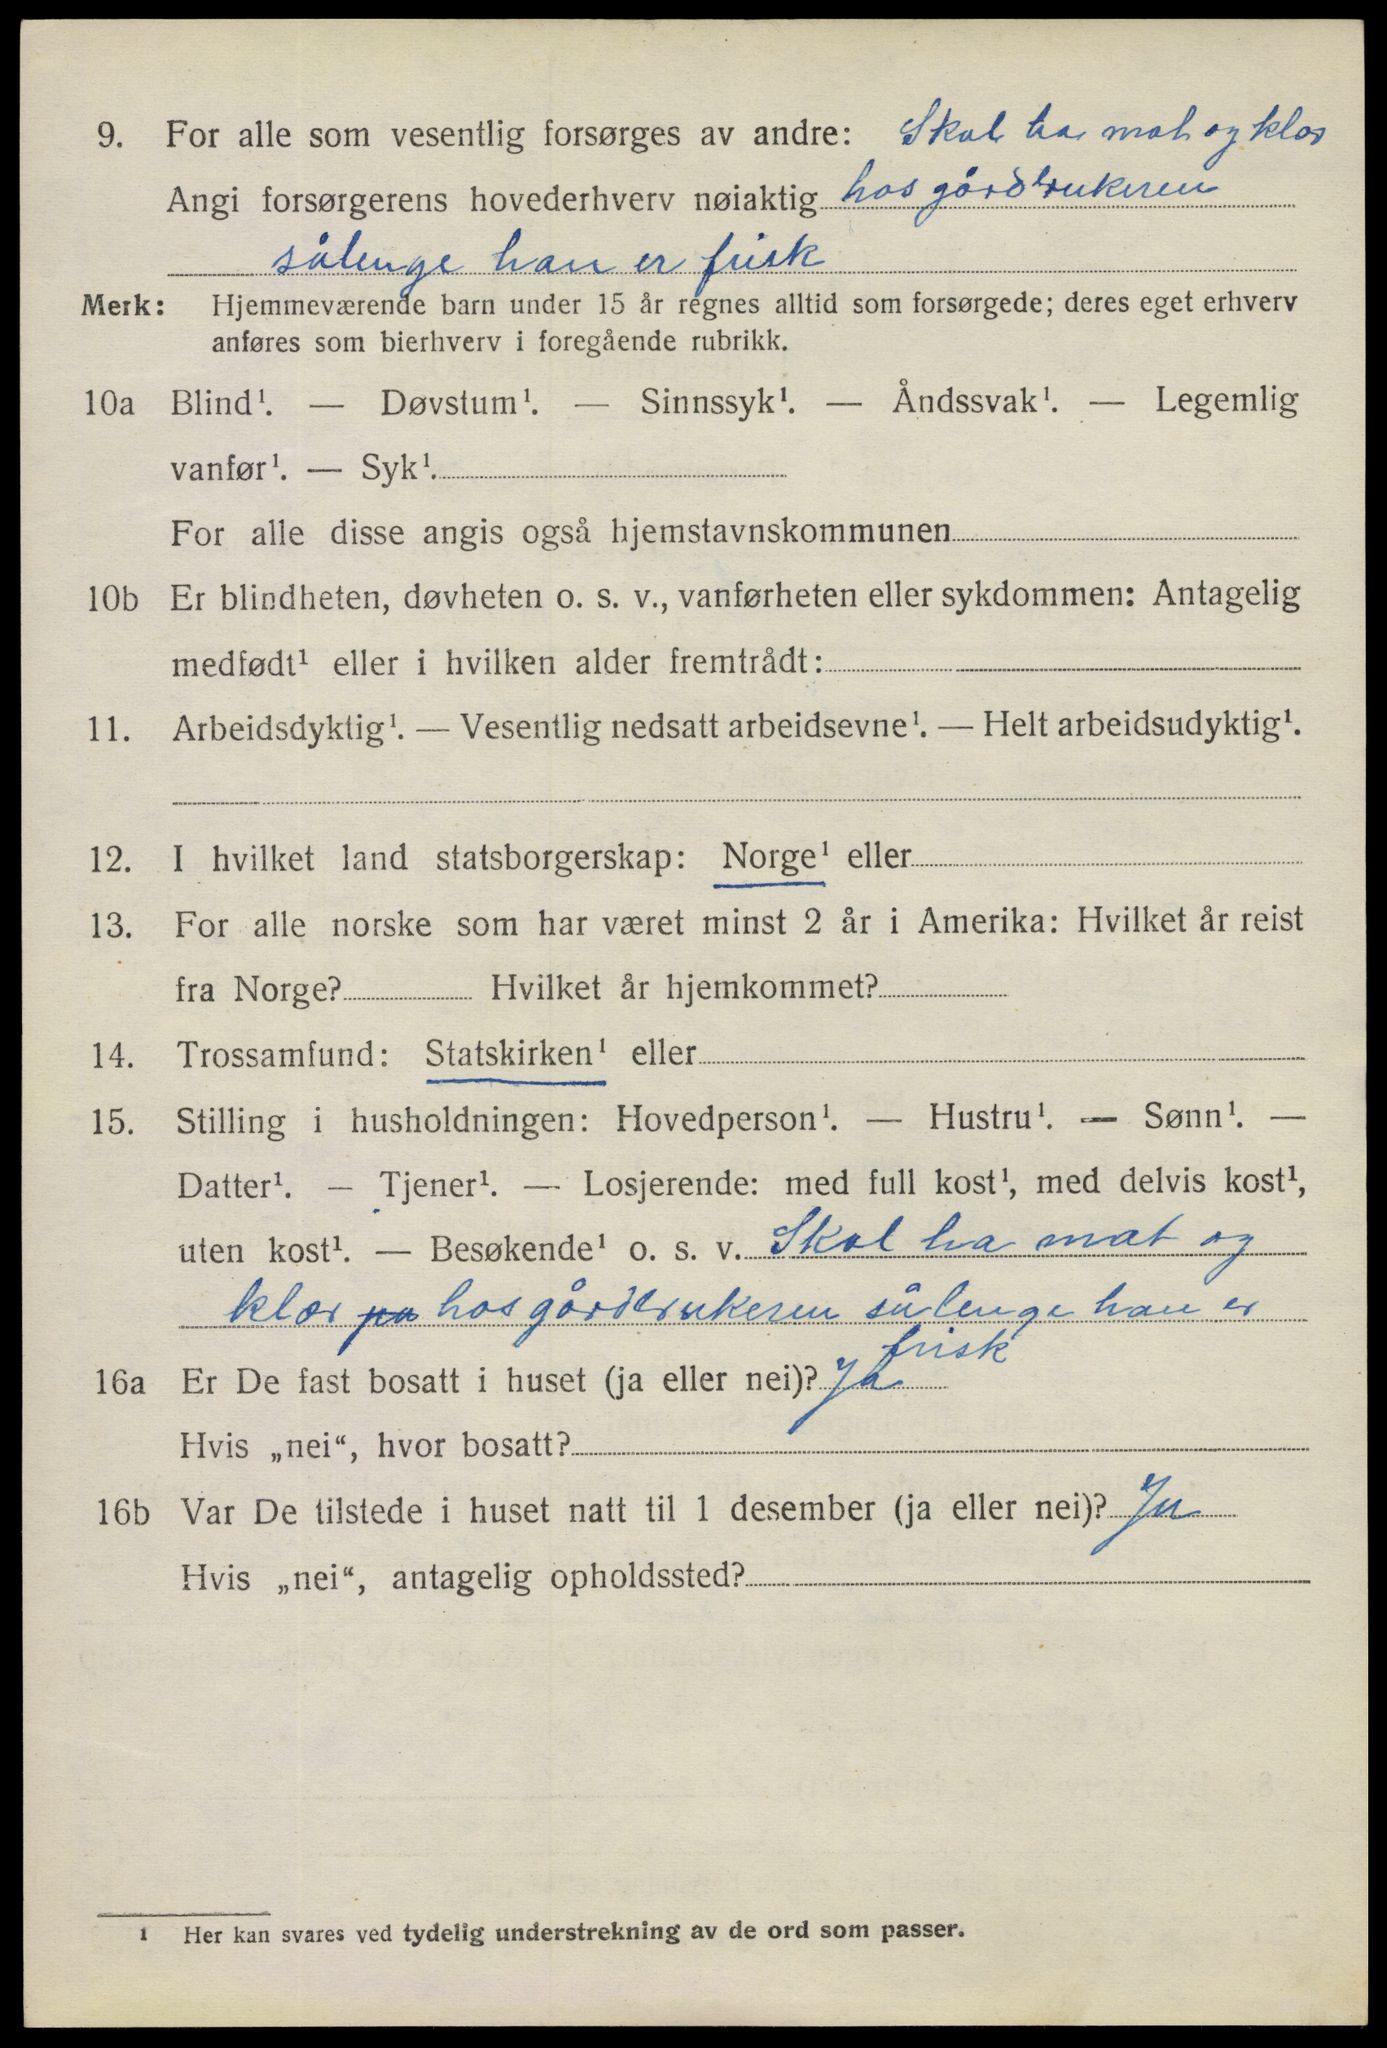 9. For alle som vesentlig forsørges av andre: Skal ha mat og klær
Angi forsørgerens hovederhverv nøiaktig hos gårdbrukeren
sålenge han er frisk
Merk: Hjemmeværende barn under 15 år regnes alltid som forsørgede; deres eget erhverv
anføres som bierhverv i foregående rubrikk.
10a Blind¹. — Døvstum¹. — Sinnssyk¹. — Åndssvak¹. — Legemlig
vanfør¹. — Syk¹.
For alle disse angis også hjemstavnskommunen
10b Er blindheten, døvheten o. s. v., vanførheten eller sykdommen: Antagelig
medfødt¹ eller i hvilken alder fremtrådt:
11. Arbeidsdyktig¹. — Vesentlig nedsatt arbeidsevne¹. — Helt arbeidsudyktig¹.
12. I hvilket land statsborgerskap: Norge¹ eller
13. For alle norske som har været minst 2 år i Amerika: Hvilket år reist
fra Norge? Hvilket år hjemkommet?
14. Trossamfund: Statskirken¹ eller
15. Stilling i husholdningen: Hovedperson¹. — Hustru¹. — Sønn¹. —
Datter¹. — Tjener¹. — Losjerende: med full kost¹, med delvis kost¹,
uten kost¹. — Besøkende¹ o. s. v. Skal ha mat og
klær hos gårdbrukeren sålenge han er
frisk
16a Er De fast bosatt i huset (ja eller nei)? Ja
Hvis „nei“, hvor bosatt?
16b Var De tilstede i huset natt til 1 desember (ja eller nei)? Ja
Hvis „nei“, antagelig opholdssted?
1 Her kan svares ved tydelig understrekning av de ord som passer.